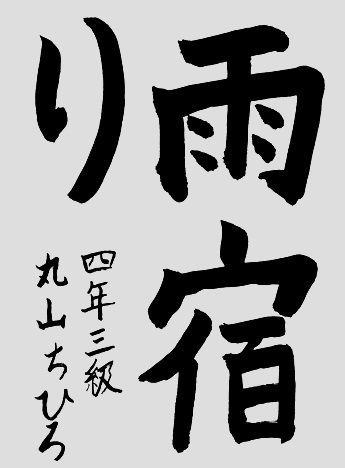 雨宿
り
四年三級
丸山ちひろ